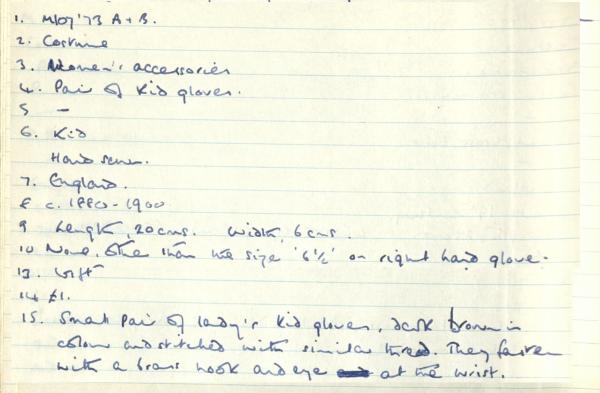 1. M107'73 A + B.
2. Costume
3. Women's accessories
4. Pair of Kid gloves.
5 -
6. Kid
Hand sewn.
7. England.
8 c. 1880-1900
9 Length, 20cms. Width, 6cms.
10 None, other than the size '6½' on right hand glove.
13. Gift
14 £1.
15. Small pair of lady's kid gloves, dark brown in
colour and stitched with similar thread. They fasten
with a brass hook and eye at the wrist.